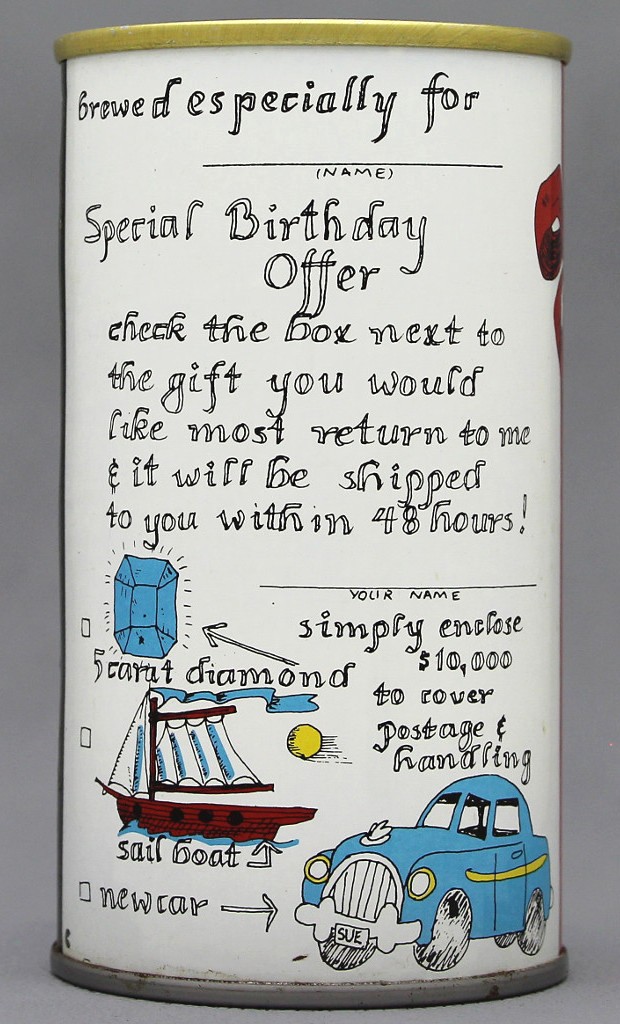 brewed especially for
(NAME)
Special Birthday
Offer
check the box next to
the gift you would
like most return to me
& it will be shipped
to you within 48 hours!
YOUR NAME
simply enclose
$10,000
to cover
postage &
handling
5 carat diamond
sail boat
new car
SUE